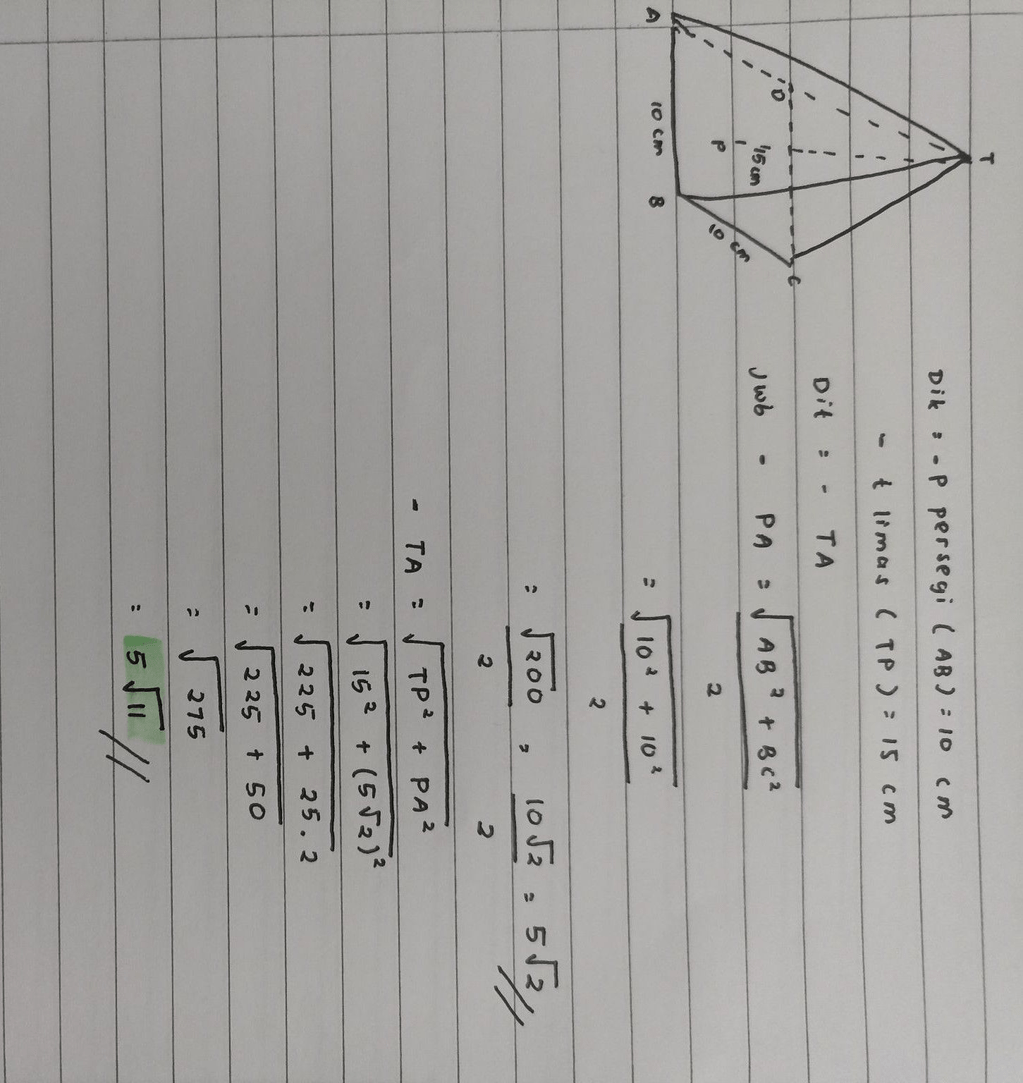 T
A
D
15 cm
P
10 cm
B
10 cm
C
Dik : - p persegi (AB) = 10 cm
- t limas (TP) = 15 cm
Dit : - TA
Jwb - PA = √AB² + BC²
2
= √10² + 10²
2
= √200 = 10√2 = 5√2 //
2 2
- TA = √TP² + PA²
= √15² + (5√2)²
= √225 + 25.2
= √225 + 50
= √275
= 5√11 //